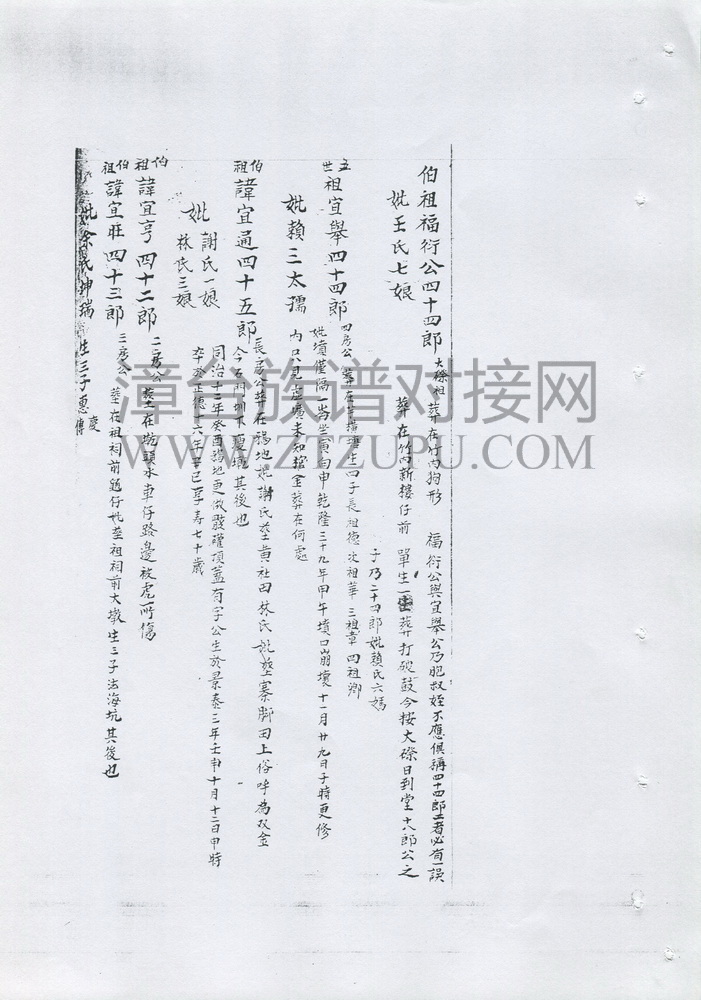 伯祖福衍公四十四郎 大磜祖 葬在竹內狗形 福衍公與宜舉公乃胞叔姪不應俱稱四十四郎二者必有一誤
妣王氏七娘 葬在竹內新樓仔前 單生一 葬打破鼓今按大磜日到堂十八郎公之
子乃二十四郎妣賴氏六媽
五世祖宜舉四十四郎 四房公 葬在 生四子長祖德次祖華三祖章四祖卿
妣墳僅隔一崙坐寅向申乾隆三十九年甲午墳口崩壞十一月廿九日子時更修
妣賴三太孺 內只見虛壙未知骸金葬在何處
伯祖諱宜通四十五郎 長房公葬在 地妣謝氏塋黃社田林氏妣塋寨腳田上俗呼為双金
今石門圳下慶塘其後也
妣 謝氏一娘 林氏三娘 同治十二年癸酉 地更做骸罐頂蓋有字公生於景泰三年壬申十月十二日申時
卒於正德十六年辛巳享壽七十歲
伯祖諱宜亨四十二郎 二房公 塋在 頭水車仔路邊被虎所傷
伯祖諱宜旺四十三郎 三房公 塋在祖祠前 仔妣塋祖祠前大墩生三子法海坑其後也
妣余氏坤瑞 生三子 惠 慶 傳
漳台族谱对接网
WWW.ZTZUPU.COM